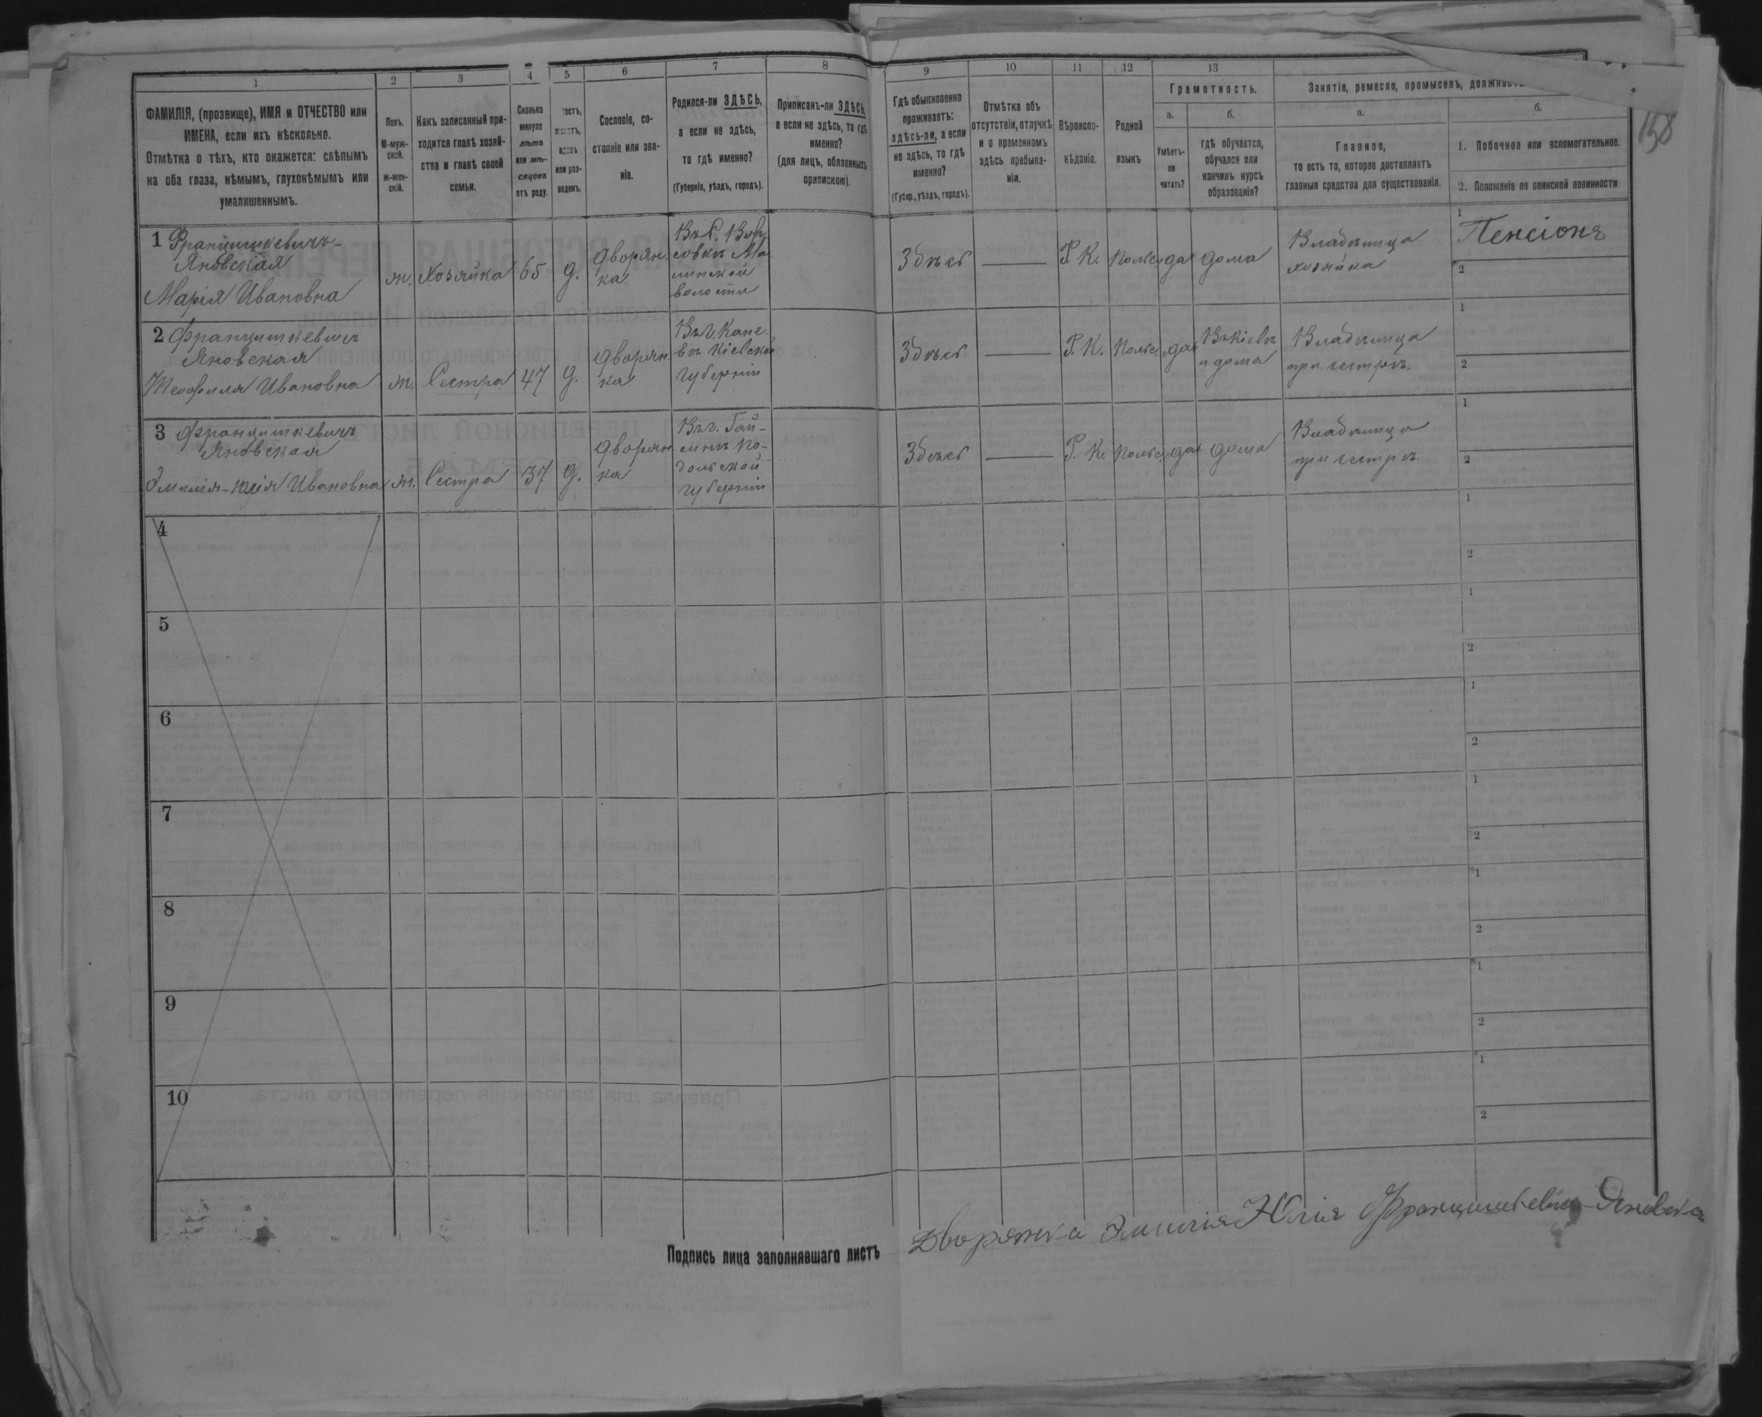 158
1 2 3 4 5 6 7 8 9 10 11 12 13
ФАМИЛІЯ, (прозвище), ИМЯ и ОТЧЕСТВО или
ИМЕНА, если ихъ нѣсколько.
Отмѣтка о тѣхъ, кто окажется: слѣпымъ
на оба глаза, нѣмымъ, глухонѣмымъ или
умалишеннымъ.
Полъ.
М-муж-
ской.
ж-жен-
скій.
Какъ записанный при-
ходится главѣ хозяй-
ства и главѣ своей
семьи.
Сколько
минуло
лѣтъ
или мѣ-
сяцевъ
отъ роду.
или раз-
веденъ.
Сословіе, со-
стояніе или зва-
ніе.
Родился-ли ЗДѢСЬ,
а если не здѣсь,
то гдѣ именно?
(Губернія, уѣздъ, городъ).
Приписанъ-ли ЗДѢСЬ,
а если не здѣсь, то гдѣ
именно?
(для лицъ, обязанныхъ
припискою)
Гдѣ обыкновенно
проживаетъ:
здѣсь-ли, а если
не здѣсь, то гдѣ
именно?
(Губер., уѣздъ, городъ).
Отмѣтка объ
отсутствіи, отлучкѣ
и о временномъ
здѣсь пребыва-
ніи.
Вѣроиспо-
вѣданіе.
Родной
языкъ
Грамотность.
а.
Умѣетъ-
ли
читать?
б.
гдѣ обучается,
обучался или
кончилъ курсъ
образованія?
Занятіе, ремесло, промыселъ, должность
а.
Главное,
то есть то, которое доставляетъ
главныя средства для существованія.
б.
1. Побочное или вспомогательное.
2. Положеніе по воинской повинности
1 Францишкевичъ-
Яновская
Марія Ивановна
ж.
Хозяйка
65
д.
дворян
ка
Малинской
волости
Здѣсь
Р. К.
Польс.
да
дома
Владѣлица
хозяйка
1
Пенсіоня
2
2 Францишкевичъ
Яновская
Теофиля Ивановна
ж.
Сестра
47
д.
дворян
ка
Въ г. Кане
въ Кіевской
губерніи
Здѣсь
Р. К.
Польс.
да
Въ Кіевѣ
и дома
Владѣлица
при сестрѣ
1
2
3 Францишкевичъ
Яновская
Эмилія-Юлія Ивановна
ж.
Сестра
37
д.
дворян
ка
Въ г. Гай-
синѣ По-
дольской
губерніи
Здѣсь
Р. К.
Польс.
да
дома
Владѣлица
при сестрѣ
1
2
4
1
2
5
1
2
6
1
2
7
1
2
8
1
2
9
1
2
10
1
2
Подпись лица заполнявшаго листъ
Дворянка Эмилія Юлія Францишкевичъ-Яновска